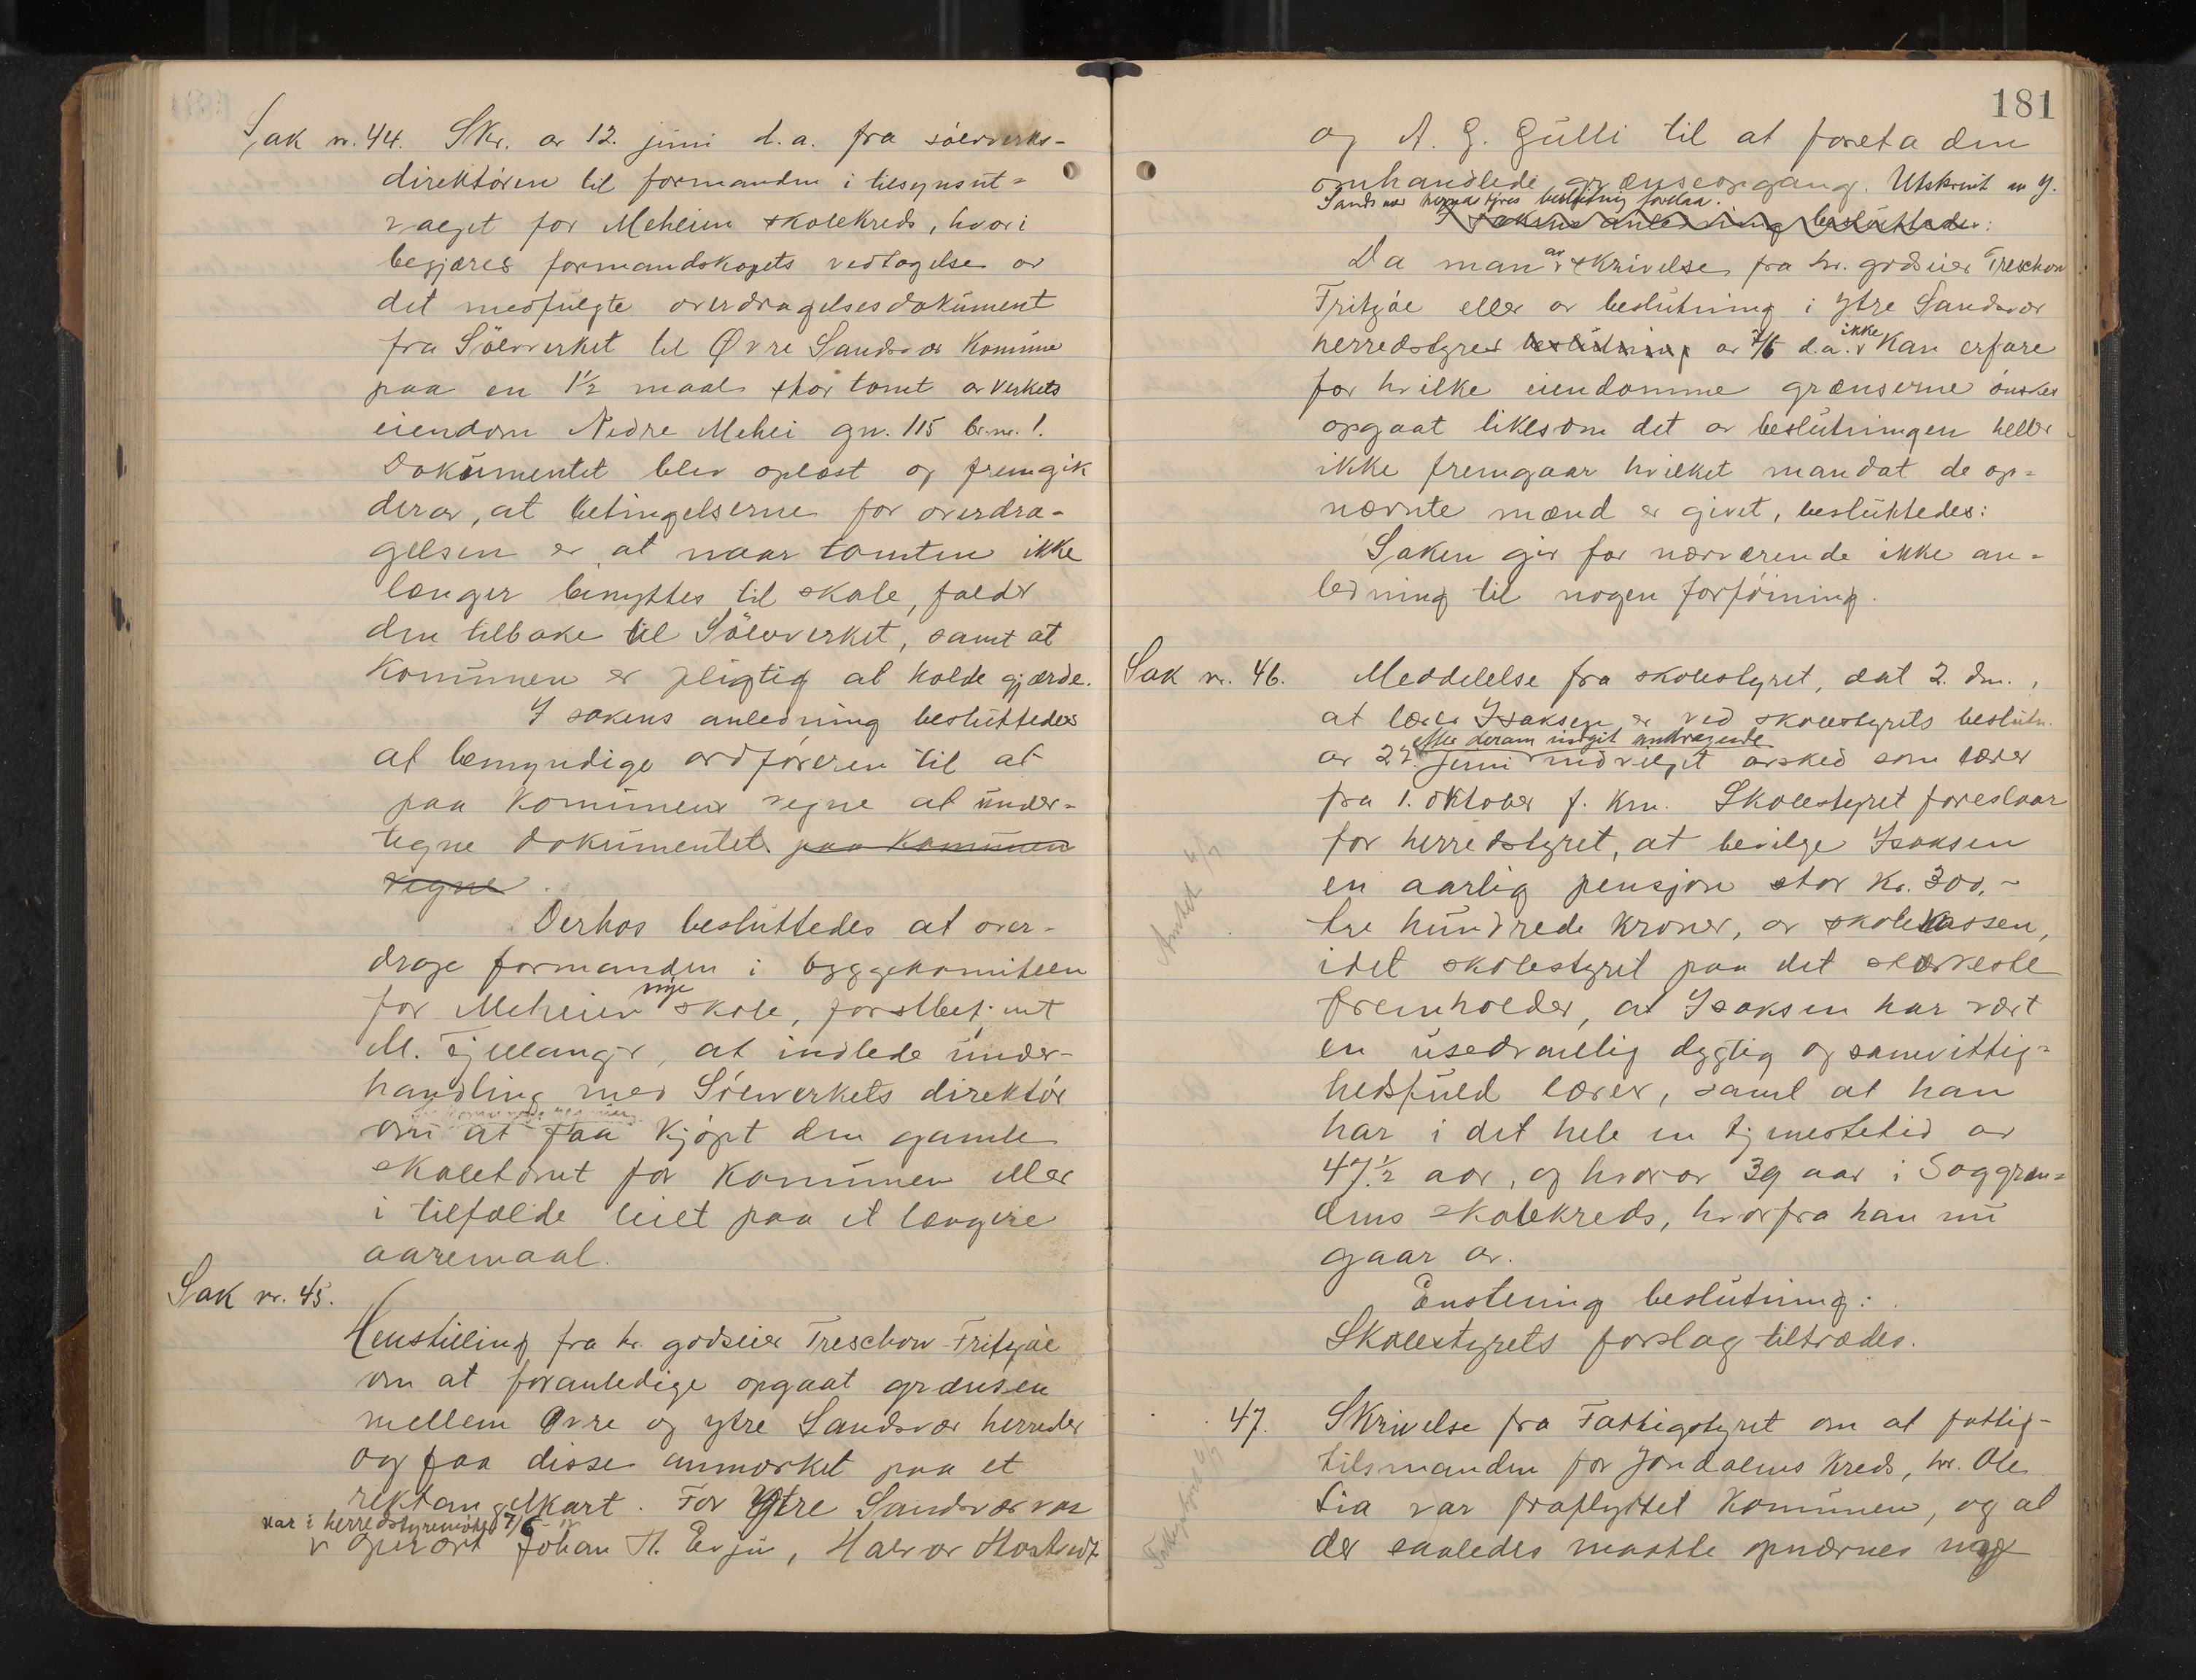 Sak nr. 44. Skr. av 12. juni d.a. fra sølvverks-
direktøren til formanden i tilsynsut-
valget for Meheien skolekreds, hvori
begjæres formandskapets vedtagelse av
det medfulgte overdragelsesdokument
fra Sølvverket til Øvre Sandsvær komune
paa en 1½ maal stor tomt av verkets
eiendom Nedre Mehei gn. 115 br.nr. 1.
Dokumentet blev oplæst og fremgik
derav, at betingelserne for overdra-
gelsen er at naar tomten ikke
længer benyttes til skole, falder
den tilbake til Sølvverket, samt at
Komunen er pligtig at holde gjærde.
I sakens anledning besluttedes
at bemyndige ordføreren til at
paa komunens vegne at under-
tegne dokumentet. paa komunens
vegne.
Derhos besluttedes at over-
drage formanden i byggekomiteen
nye
for Meheien skole, forstbetjent
M. Fjellanger, at indlede under-
handling med Sølvverkets direktør
om at faa kjøpt den gamle
skoletomt for komunen eller
i tilfælde leiet paa et længere
aaremaal.
Sak nr. 45.
Henstilling fra hr. godseier Treschow-Fritzøe
om at foranledige opgaat grænsen
mellem Øvre og ytre Sandsvær herreder
og faa disse anmerket paa et
rektangelkart. For Ytre Sandsvær var
var i herredstyremøte 7/6
opnævnt Johan H. Evju, Halvor Hostvedt
181
og A. G. Gulli til at foreta den
omhandlede grænseopgang. Utskrivt av y.
Sandsvær herredstyres beslutning forelaa.
I sakens anledning besluttedes:
av
Da man skrivelse fra hr. godseier Treschow
Fritzøe eller av beslutning i ytre Sandsvær
ikke
herredstyres beslutning av 7/6 d.a. kan erfare
for hvilke eiendomme grænserne ønskes
opgaat likesom det av beslutningen heller
ikke fremgaar hvilket mandat de op-
nævnte mænd er givet, besluttedes:
Saken gir for nærværende ikke an-
ledning til nogen forføining.
Sak nr. 46. Meddelelse fra skolestyret, dat 2. dm.,
at lærer Isaksen er ved skolestyrets beslutn.
efter derom indgit andragende
av 27. juni indvilget avsked som lærer
fra 1. oktober f. km. Skolestyret foreslaar
for herredstyret, at bevilge Isaksen
en aarlig pensjon stor kr. 300.-
tre hundrede kroner, av skolekassen,
idet skolestyret paa det stærkeste
fremholder, at Isaksen har vært
en usedvanlig dygtig og samvittig-
hedsfuld lærer, samt at han
har i det hele en tjenestetid av
47½ aar, og hvorav 39 aar i Soggren-
dens skolekreds, hvorfra han nu
gaar av.
Enstemig beslutning:
Skolestyrets forslag tiltrædes.
47. Skrivelse fra Fattigstyret om at fattig-
tilsmanden for Jondalens kreds, hr. Ole
Lia var fraflyttet komunen, og at
der saaledes maatte opnævnes nye